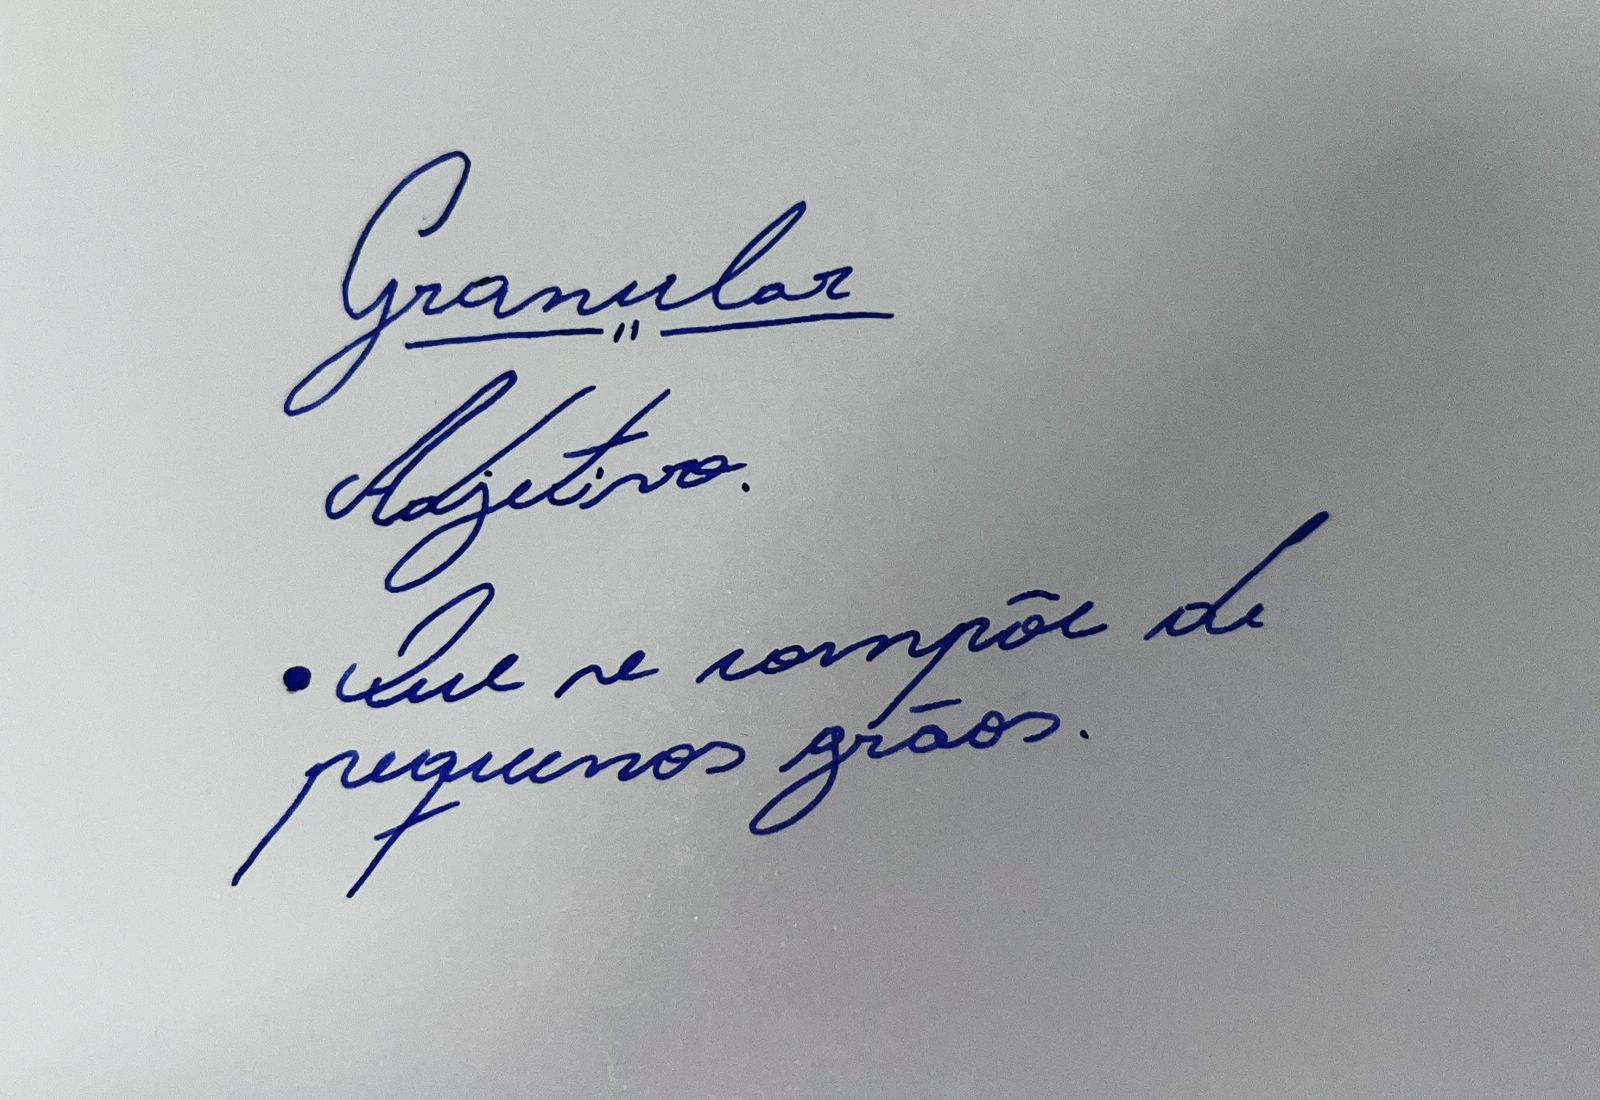 Granular
"
Adjetivo.
• Que se compõe de
pequenos grãos.